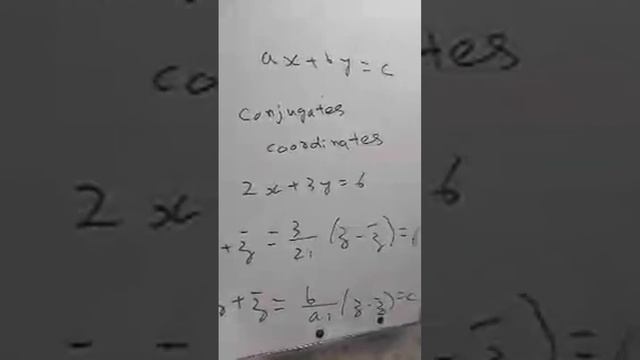 ax+by=c
Conjugates
coordinates
2x+3y=6
+ z̄ = 3/2i (z - z̄)=
+ z̄ = b/ai (z-z̄)=c